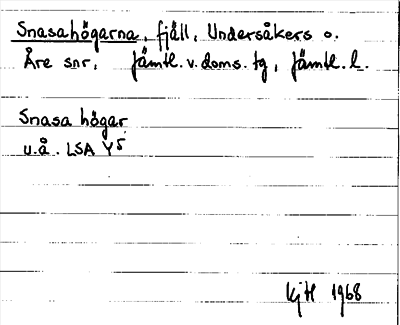 Snasahögarna, fjäll, Undersåkers o.
Åre snr, Jämtl. v. doms. tg, Jämtl. l.
Snasa högar
u.å. LSA Y5
KjH 1968